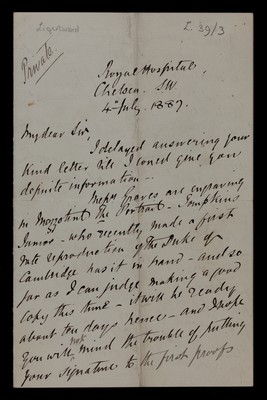 L 39/3
Private
Royal Hospital,
Chelsea. SW
4th July. 1887.
My dear Sir,
I delayed answering your
kind letter till I could give you
definite information -
Messrs Graves are engraving
in Mezzotint the Portrait - Tompkins
Junior - who recently made a first
rate reproduction of the Duke of
Cambridge has it in hand - and so
far as I can judge making a good
copy this time - it will be ready
about ten days hence - and I hope
you will not mind the trouble of putting
your signature to the first proofs